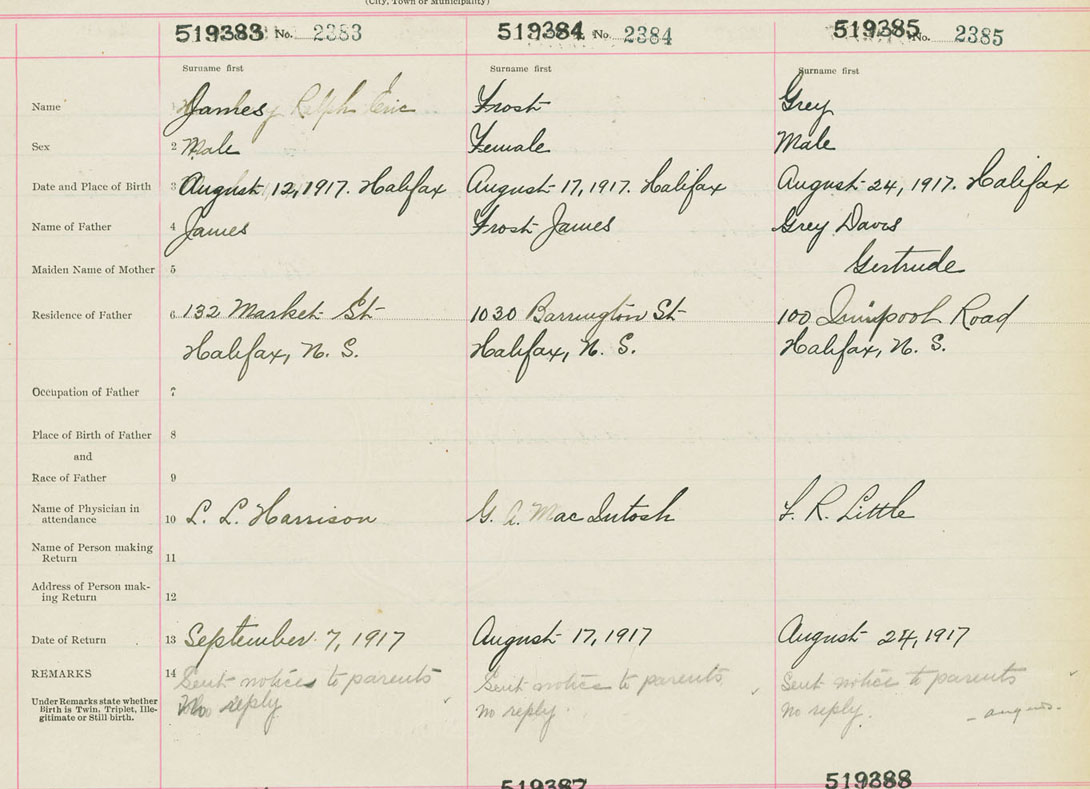 (City, Town or Municipality)
519383 No. 2383
519384 No. 2384
519385 No. 2385
Surname first
Surname first
Surname first
Name 1 James Ralph Eric
Frost
Grey
Sex 2 Male
Female
Male
Date and Place of Birth 3 August 12, 1917. Halifax
August 17, 1917. Halifax
August 24, 1917. Halifax
Name of Father 4 James
Frost James
Grey Davis
Maiden Name of Mother 5
Gertrude
Residence of Father 6 132 Market St
1030 Barrington St
100 Quinpool Road
Halifax, N. S.
Halifax, N. S.
Halifax, N. S.
Occupation of Father 7
Place of Birth of Father 8
and
Race of Father 9
Name of Physician in
attendance 10 L. L. Harrison
G. A. MacIntosh
F. R. Little
Name of Person making
Return 11
Address of Person mak-
ing Return 12
Date of Return 13 September 7, 1917
August 17, 1917
August 24, 1917
REMARKS 14 Sent notices to parents
Sent notice to parents
Sent notice to parents
Under Remarks state whether
Birth is Twin, Triplet, Ille-
gitimate or Still birth.
No reply
No reply.
No reply.
519387
519388